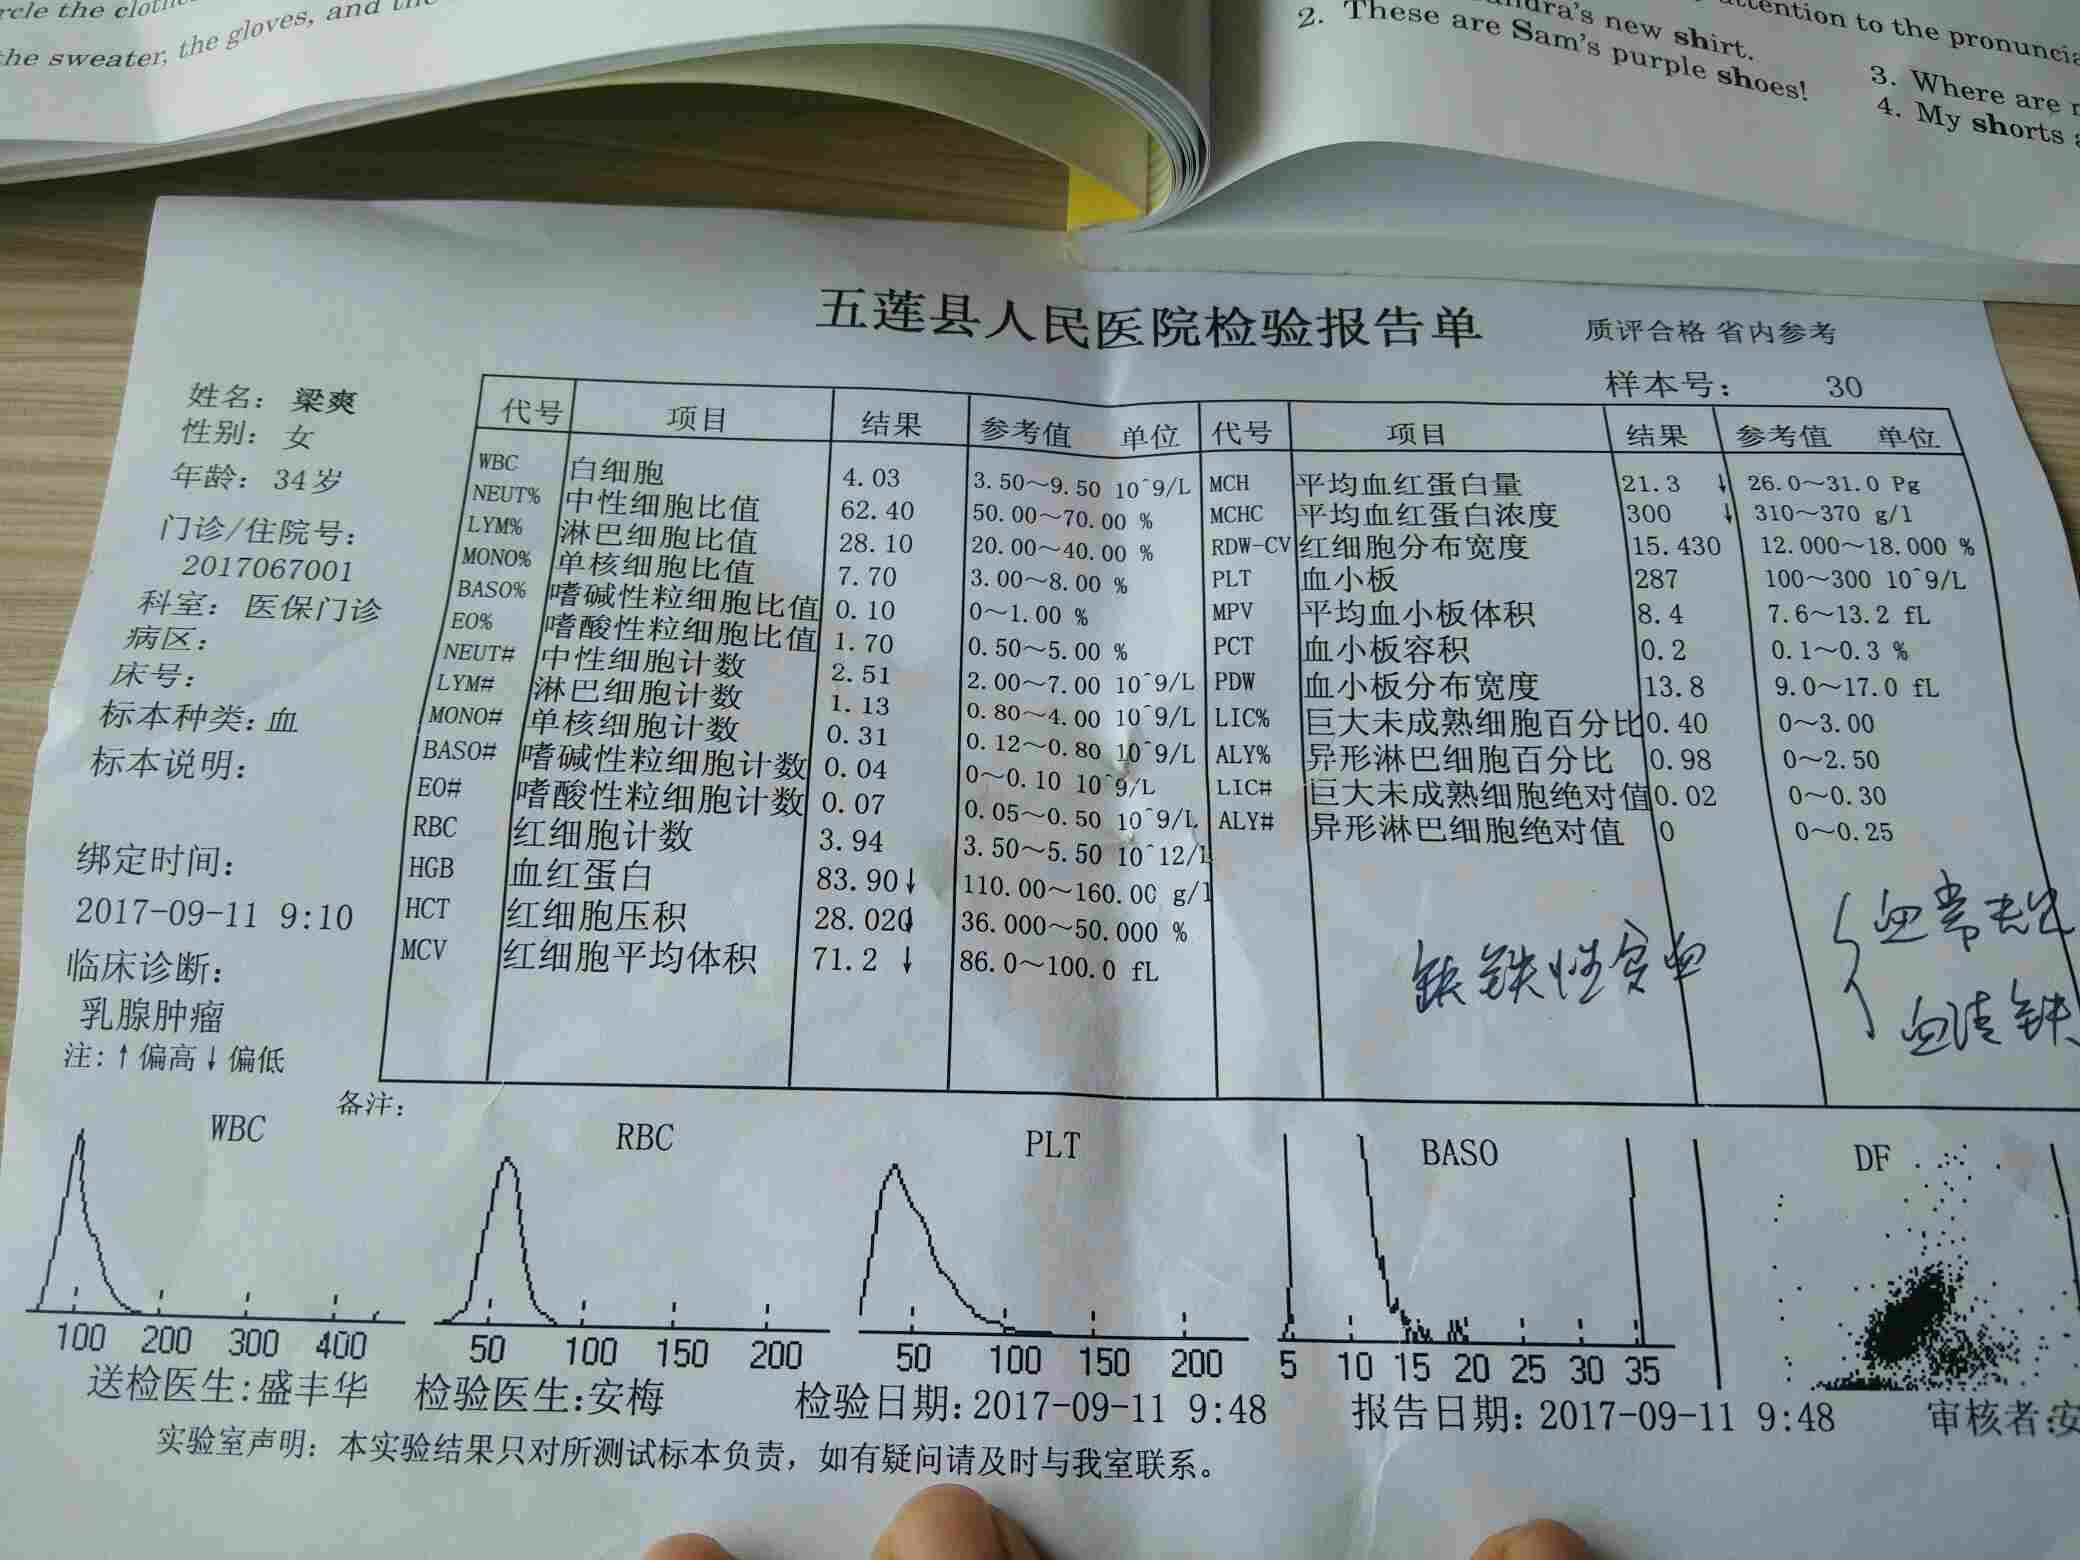 rcle the cloth
the sweater, the gloves, and the
attention to the pronuncia
ndra's new shirt.
2. These are Sam's purple shoes!
3. Where are
4. My shorts
五莲县人民医院检验报告单
质评合格 省内参考
样本号： 30
姓名：梁爽
性别：女
年龄：34岁
门诊/住院号：
2017067001
科室：医保门诊
病区：
床号：
标本种类：血
标本说明：
绑定时间：
2017-09-11 9:10
临床诊断：
乳腺肿瘤
注:↑偏高↓偏低
代号 项目 结果 参考值 单位
WBC 白细胞 4.03 3.50～9.50 10^9/L
NEUT% 中性细胞比值 62.40 50.00～70.00 %
LYM% 淋巴细胞比值 28.10 20.00～40.00 %
MONO% 单核细胞比值 7.70 3.00～8.00 %
BASO% 嗜碱性粒细胞比值 0.10 0～1.00 %
EO% 嗜酸性粒细胞比值 1.70 0.50～5.00 %
NEUT# 中性细胞计数 2.51 2.00～7.00 10^9/L
LYM# 淋巴细胞计数 1.13 0.80～4.00 10^9/L
MONO# 单核细胞计数 0.31 0.12～0.80 10^9/L
BASO# 嗜碱性粒细胞计数 0.04 0～0.10 10^9/L
EO# 嗜酸性粒细胞计数 0.07 0.05～0.50 10^9/L
RBC 红细胞计数 3.94 3.50～5.50 10^12/L
HGB 血红蛋白 83.90↓ 110.00～160.00 g/l
HCT 红细胞压积 28.020↓ 36.000～50.000 %
MCV 红细胞平均体积 71.2 ↓ 86.0～100.0 fL
代号 项目 结果 参考值 单位
MCH 平均血红蛋白量 21.3 ↓ 26.0～31.0 Pg
MCHC 平均血红蛋白浓度 300 ↓ 310～370 g/l
RDW-CV 红细胞分布宽度 15.430 12.000～18.000 %
PLT 血小板 287 100～300 10^9/L
MPV 平均血小板体积 8.4 7.6～13.2 fL
PCT 血小板容积 0.2 0.1～0.3 %
PDW 血小板分布宽度 13.8 9.0～17.0 fL
LIC% 巨大未成熟细胞百分比 0.40 0～3.00
ALY% 异形淋巴细胞百分比 0.98 0～2.50
LIC# 巨大未成熟细胞绝对值 0.02 0～0.30
ALY# 异形淋巴细胞绝对值 0 0～0.25
缺铁性贫血
血常规
血清铁
备注：
WBC
100 200 300 400
RBC
50 100 150 200
PLT
50 100 150 200
BASO
5 10 15 20 25 30 35
DF
送检医生:盛丰华 检验医生:安梅 检验日期:2017-09-11 9:48 报告日期:2017-09-11 9:48 审核者:安
实验室声明：本实验结果只对所测试标本负责，如有疑问请及时与我室联系。